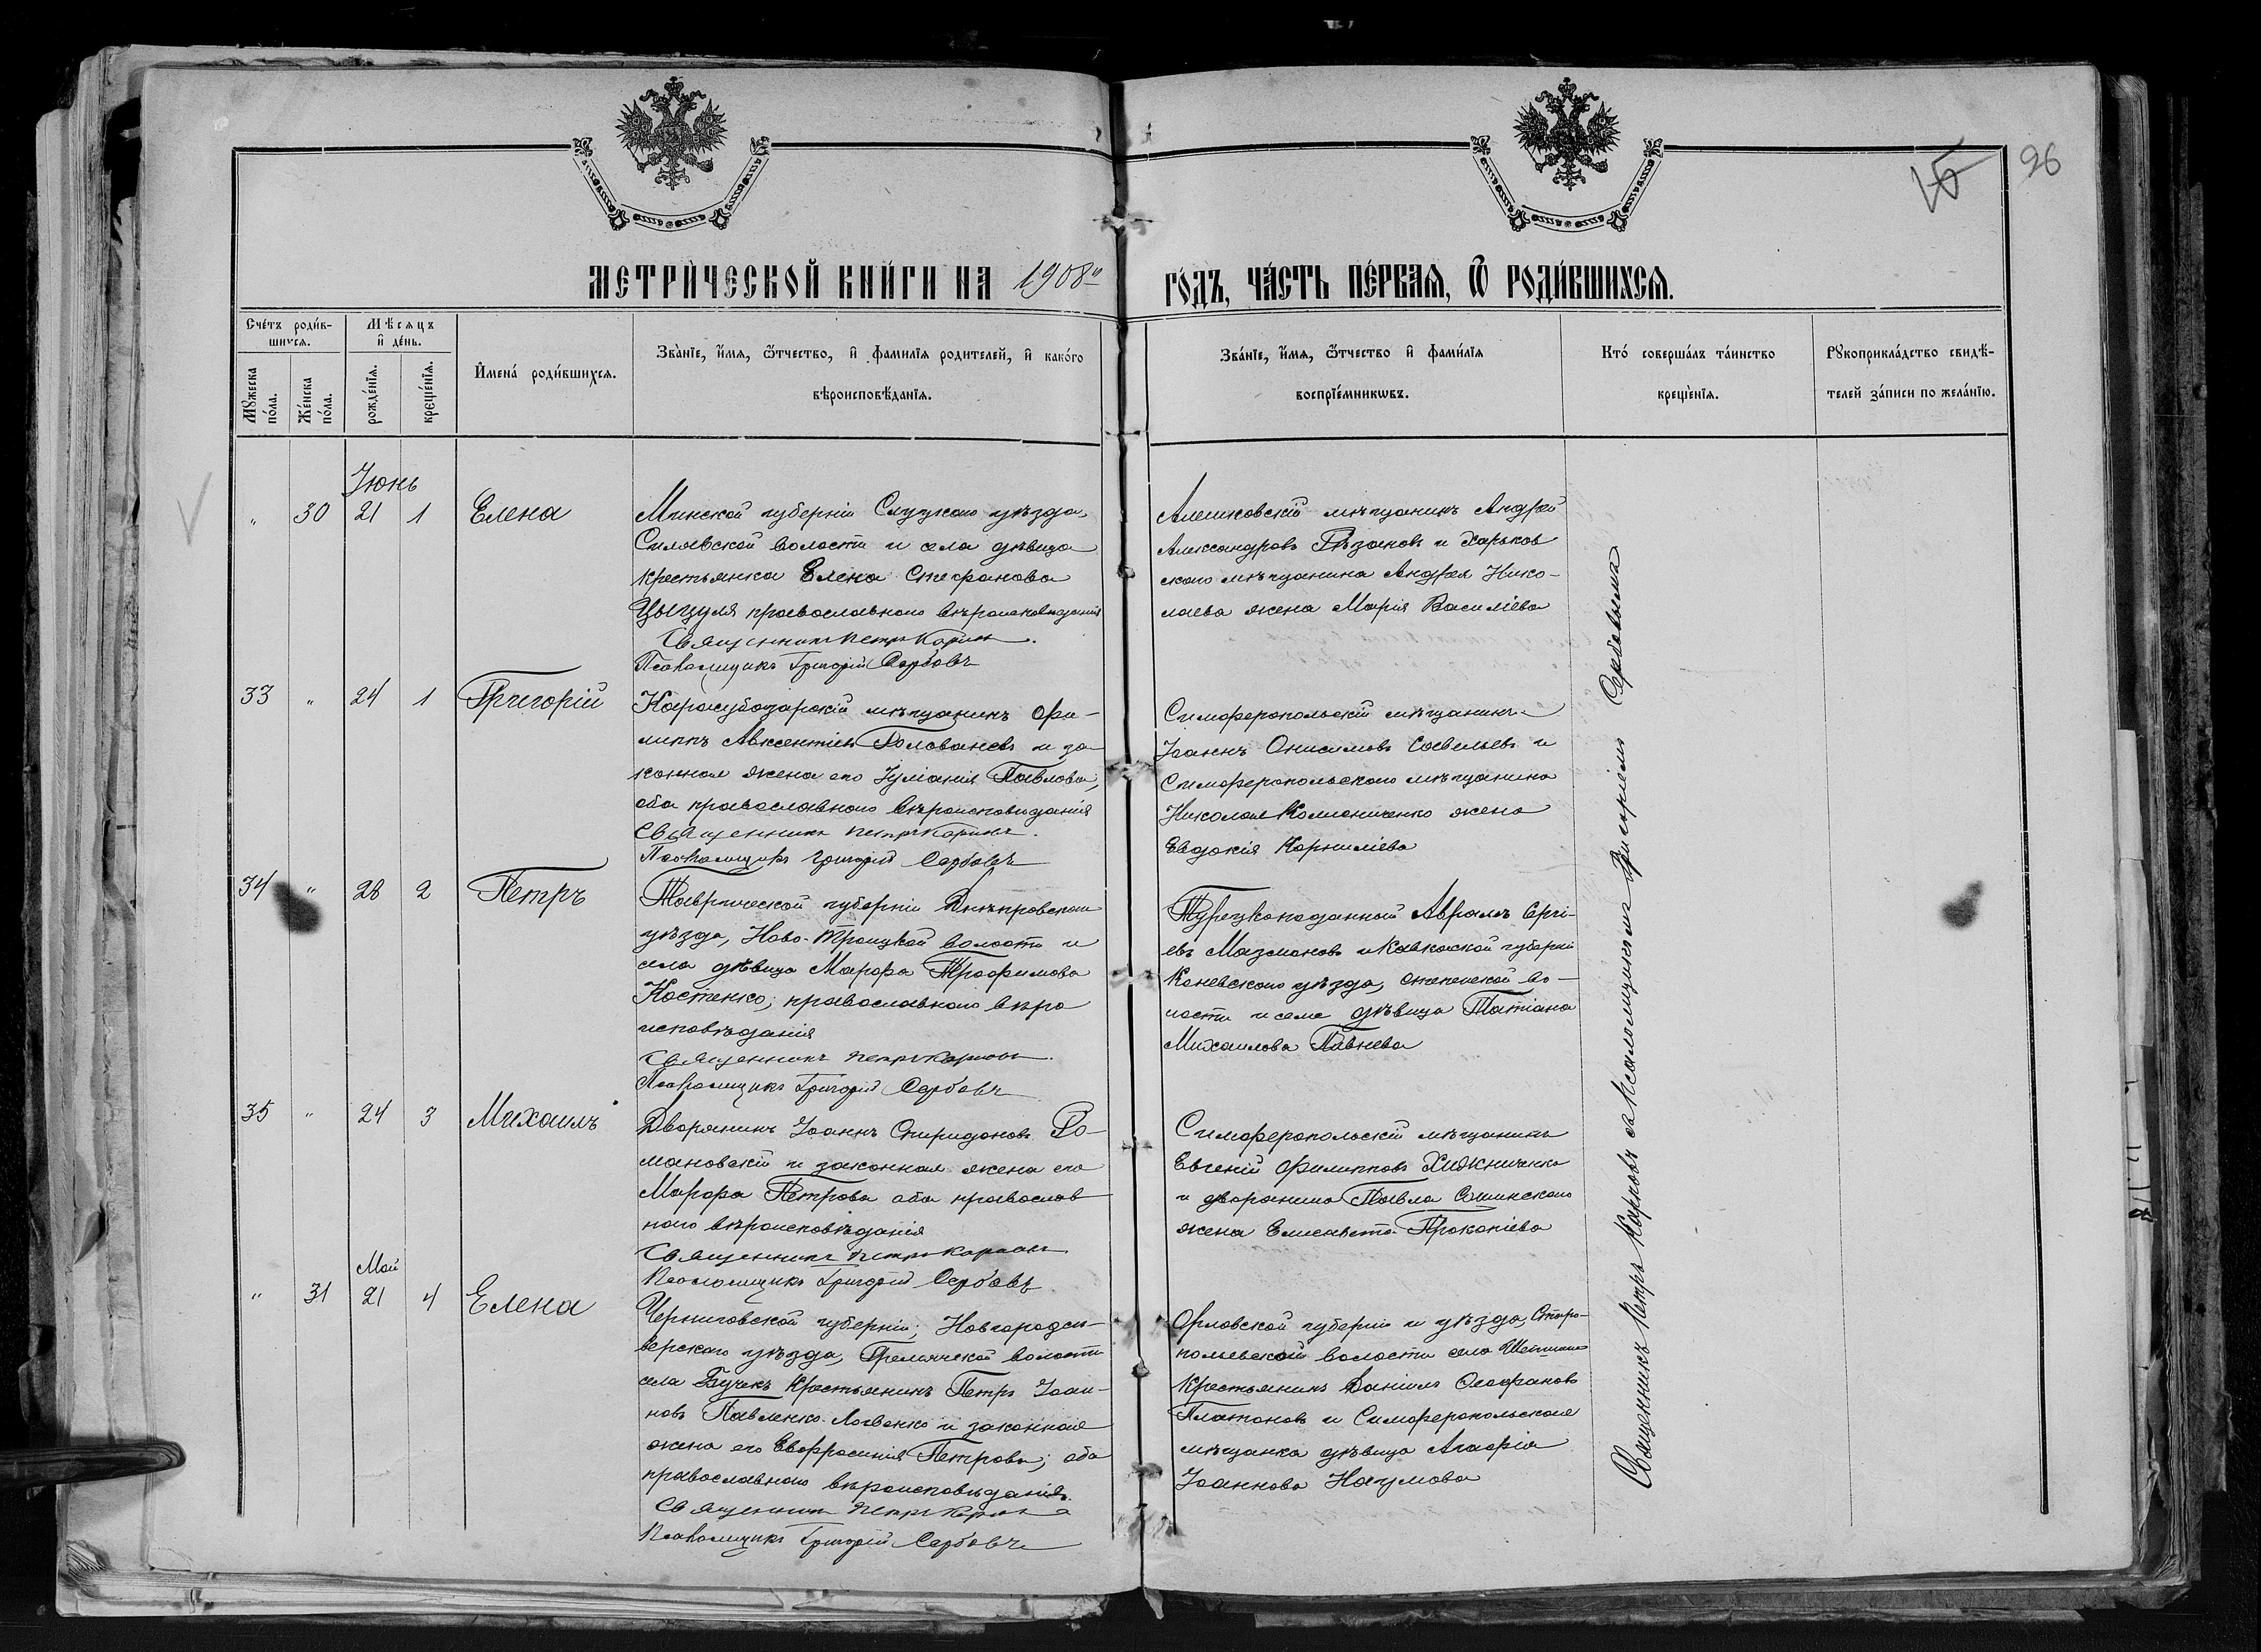 26
МЕТРИЧЕСКОЙ КНИГИ НА 1908й
ГОДЪ, ЧАСТЬ ПЕРВАЯ, Ѿ РОДИВШИХСЯ.
Счетъ родив-
шихся.
Мѣсяцъ
и день.
Мужеска пола.
Женска пола.
рожденія.
крещенія.
Имена родившихся.
Званіе, имя, ѿтчество, и фамилія родителей, и какого
вѣроисповѣданія.
Званіе, имя, ѿтчество и фамилія
воспріемникѡвъ.
Кто совершалъ таинство
крещенія.
Рукоприкладство свидѣ-
телей записи по желанію.
Іюнь
" 30 21 1 Елена
Минской губерніи Слуцкаго уѣзда,
волости и села дѣвица
крестьянка Елена Стефанова
Цыцуля православнаго вѣроисповѣданія
Священникъ Петръ Карповъ.
Псаломщикъ Григорій Сербовъ
Алешковскій мѣщанинъ Андрей
Александровъ Рѣзановъ и Харьков
скаго мѣщанина Андрея Нико-
лаева жена Марія Василіева
33 " 24 1 Григорій
Карасубазарскій мѣщанинъ Фи-
липпъ Авксентіевъ Головановъ и за-
конная жена его Іуліанія Павлова,
оба православнаго вѣроисповѣданія
Священникъ Петръ Карповъ.
Псаломщикъ Григорій Сербовъ
Симферопольскій мѣщанинъ
Іоаннъ Онисимовъ Савельевъ и
Симферопольскаго мѣщанина
Николая жена
Евдокія Корниліева
34 " 28 2 Петръ
Таврической губерніи Днѣпровскаго
уѣзда, Ново-Троицкой волости и
села дѣвица Марфа Трофимова
Костенко; православнаго вѣро
исповѣданія
Священникъ Петръ Карповъ.
Псаломщикъ Григорій Сербовъ
Турецкоподанный Авраамъ Сергі-
евъ Мазмановъ и губерніи
Каневскаго уѣзда, Степенской во-
лости и села дѣвица Татіана
Михаилова
35 " 24 3 Михаилъ
Дворянинъ Іоаннъ Спиридоновъ Ро-
мановскій и законная жена его
Марфа Петрова оба православ
наго вѣроисповѣданія
Священникъ Петръ Карповъ
Псаломщикъ Григорій Сербовъ
Симферопольскій мѣщанинъ
Евгеній Филипповъ Хижниченко
и дворянина Павла
жена Елисавета Прокопіева
Май
" 31 21 4 Елена
Черниговской губерніи; Новгородсѣ-
верскаго уѣзда, волости
села Бучекъ крестьянинъ Петръ Іоан-
новъ Павленко-Логвенко и законная
жена его Евфросинія Петрова; оба
православнаго вѣроисповѣданія.
Священникъ Петръ Карповъ
Псаломщикъ Григорій Сербовъ
Орловской губерніи и уѣзда,
волости села
крестьянинъ Даніилъ
Платоновъ и Симферопольская
мѣщанка дѣвица Агафія
Іоаннова Наумова
Священникъ Петръ Карповъ съ псаломщикомъ Григоріемъ Сербовымъ